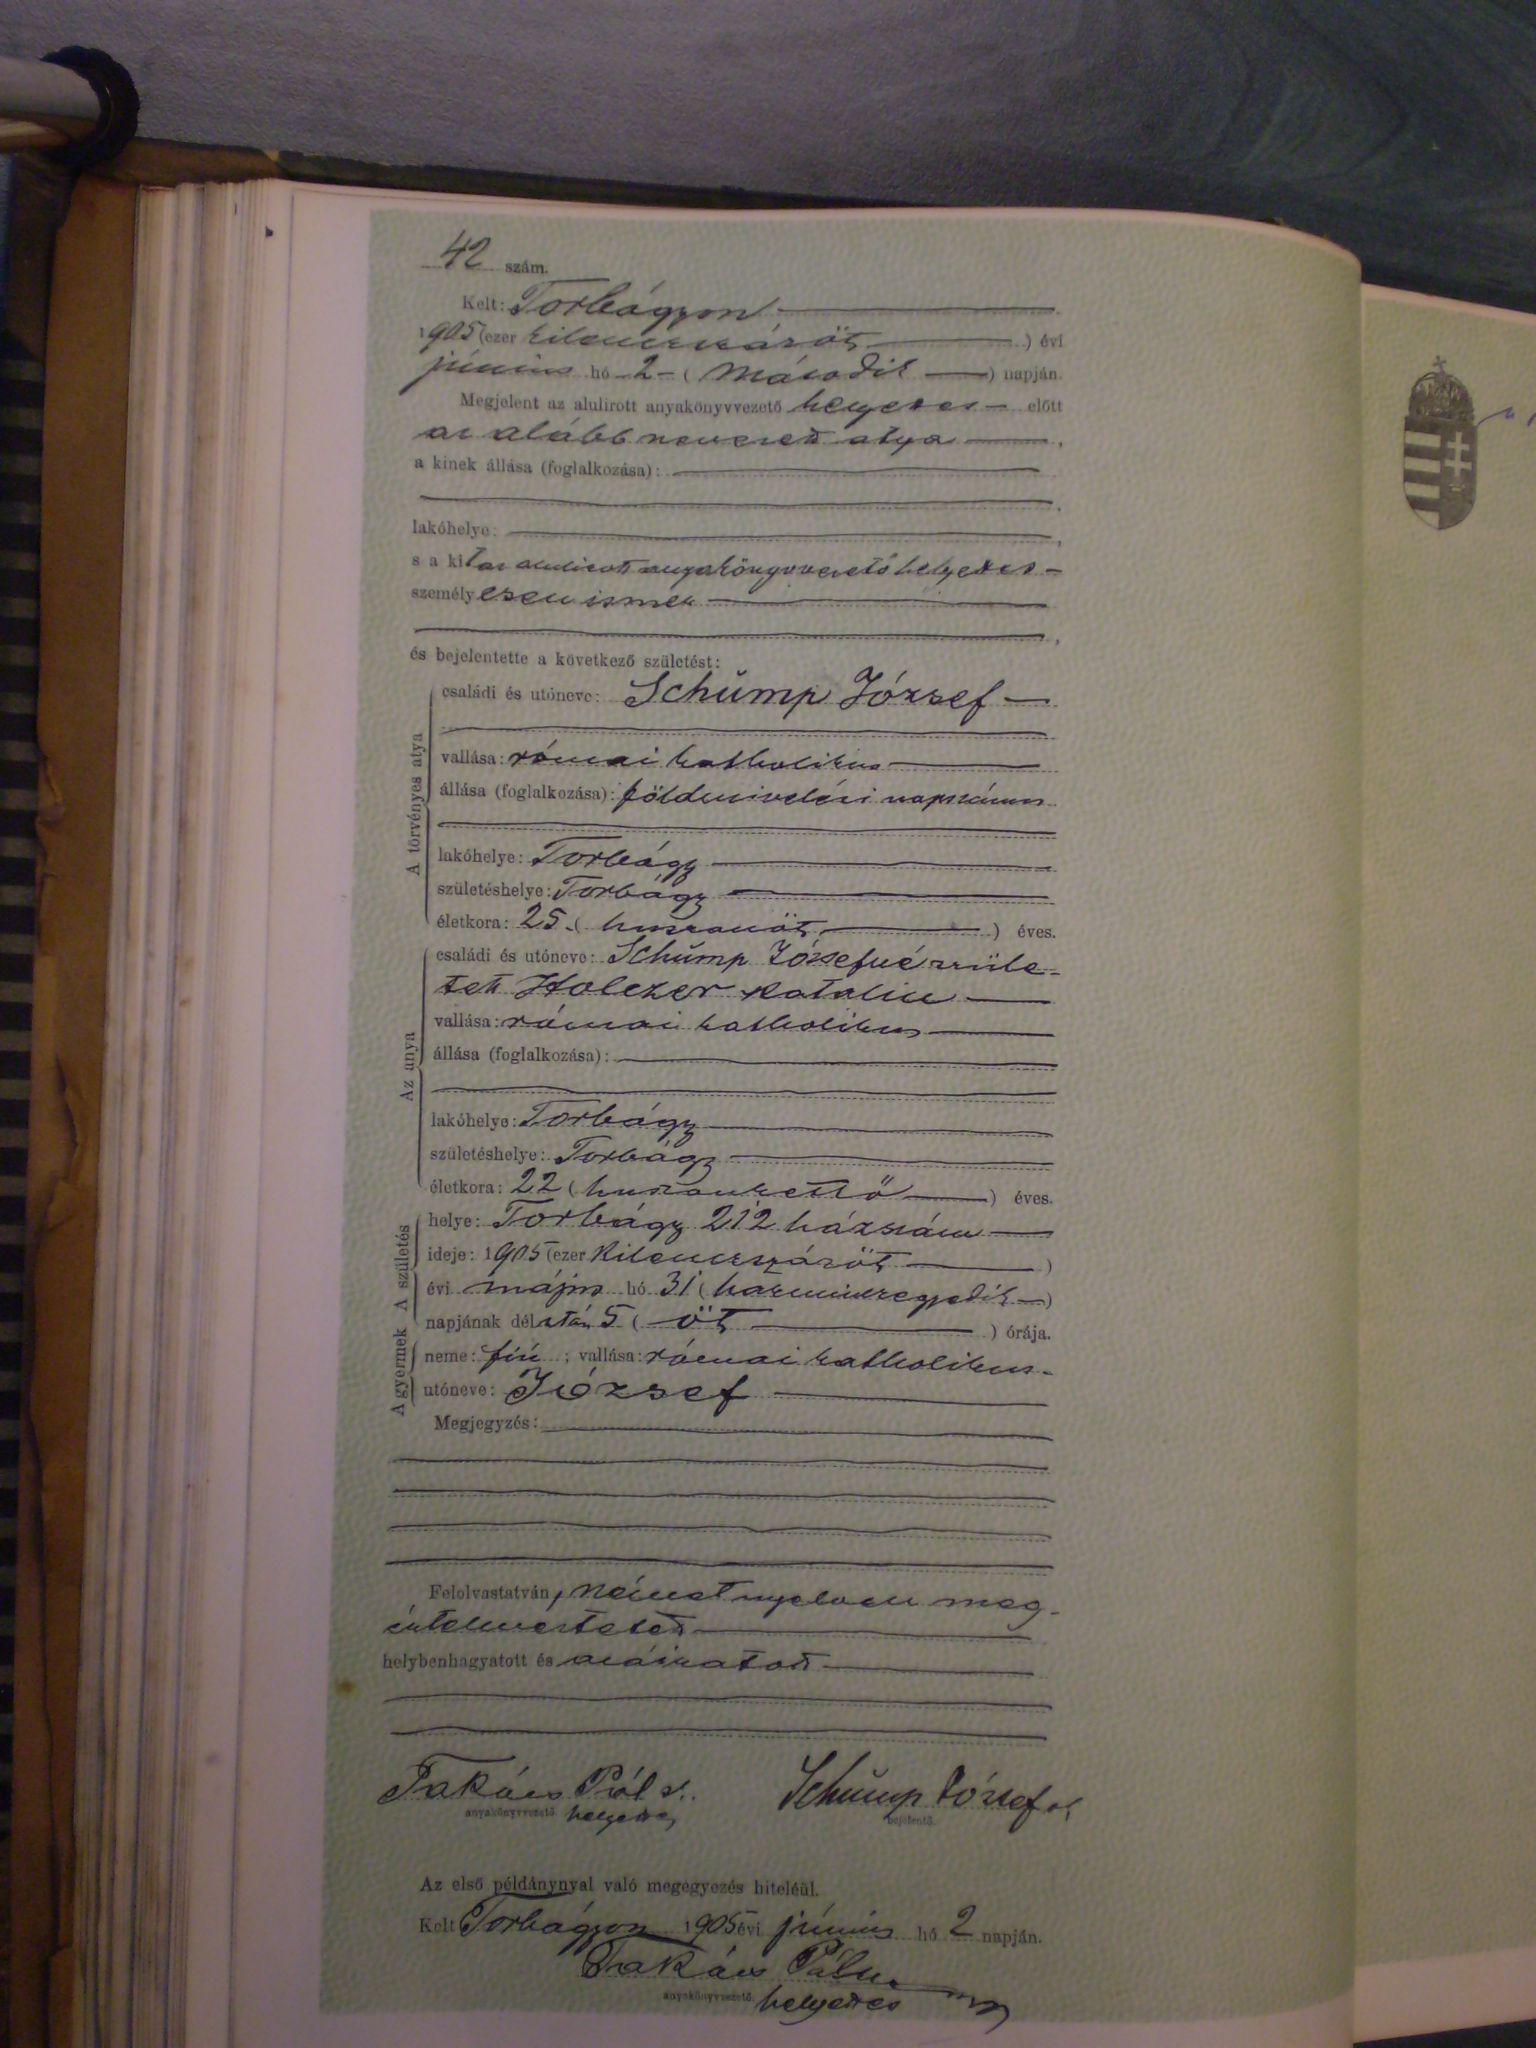 42 szám.
Kelt: Torbágyon
1905 (ezer kilenczszázöt) évi
június hó 2 (második) napján.
Megjelent az alulirott anyakönyvvezető helyettes előtt
az alább nevezett atya,
a kinek állása (foglalkozása):
lakóhelye:
s a kit az alulirott anyakönyvvezető helyettes
személyesen ismer
és bejelentette a következő születést:
A törvényes atya
családi és utóneve: Schümp József
vallása: római katholikus
állása (foglalkozása): földmivelési napszámos
lakóhelye: Torbágy
születéshelye: Torbágy
életkora: 25 (huszonöt) éves.
Az anya
családi és utóneve: Schümp Józsefné szüle-
tett Holczer Katalin
vallása: római katholikus
állása (foglalkozása):
lakóhelye: Torbágy
születéshelye: Torbágy
életkora: 22 (huszonkettő) éves.
A születés
helye: Torbágy 212 házszám
ideje: 1905 (ezer kilenczszázöt)
évi május hó 31 (harminczegyedik)
napjának délután 5 (öt) órája.
A gyermek
neme: fiú; vallása: római katholikus.
utóneve: József
Megjegyzés:
Felolvastatván, német nyelven meg-
értelmeztetett
helybenhagyatott és aláiratott
Takács Pál s. Schümp József sk
anyakönyvvezető helyettes bejelentő.
Az első példánynyal való megegyezés hiteléül.
Kelt Torbágyon 1905 évi június hó 2 napján.
Takács Pál
anyakönyvvezető. helyettes